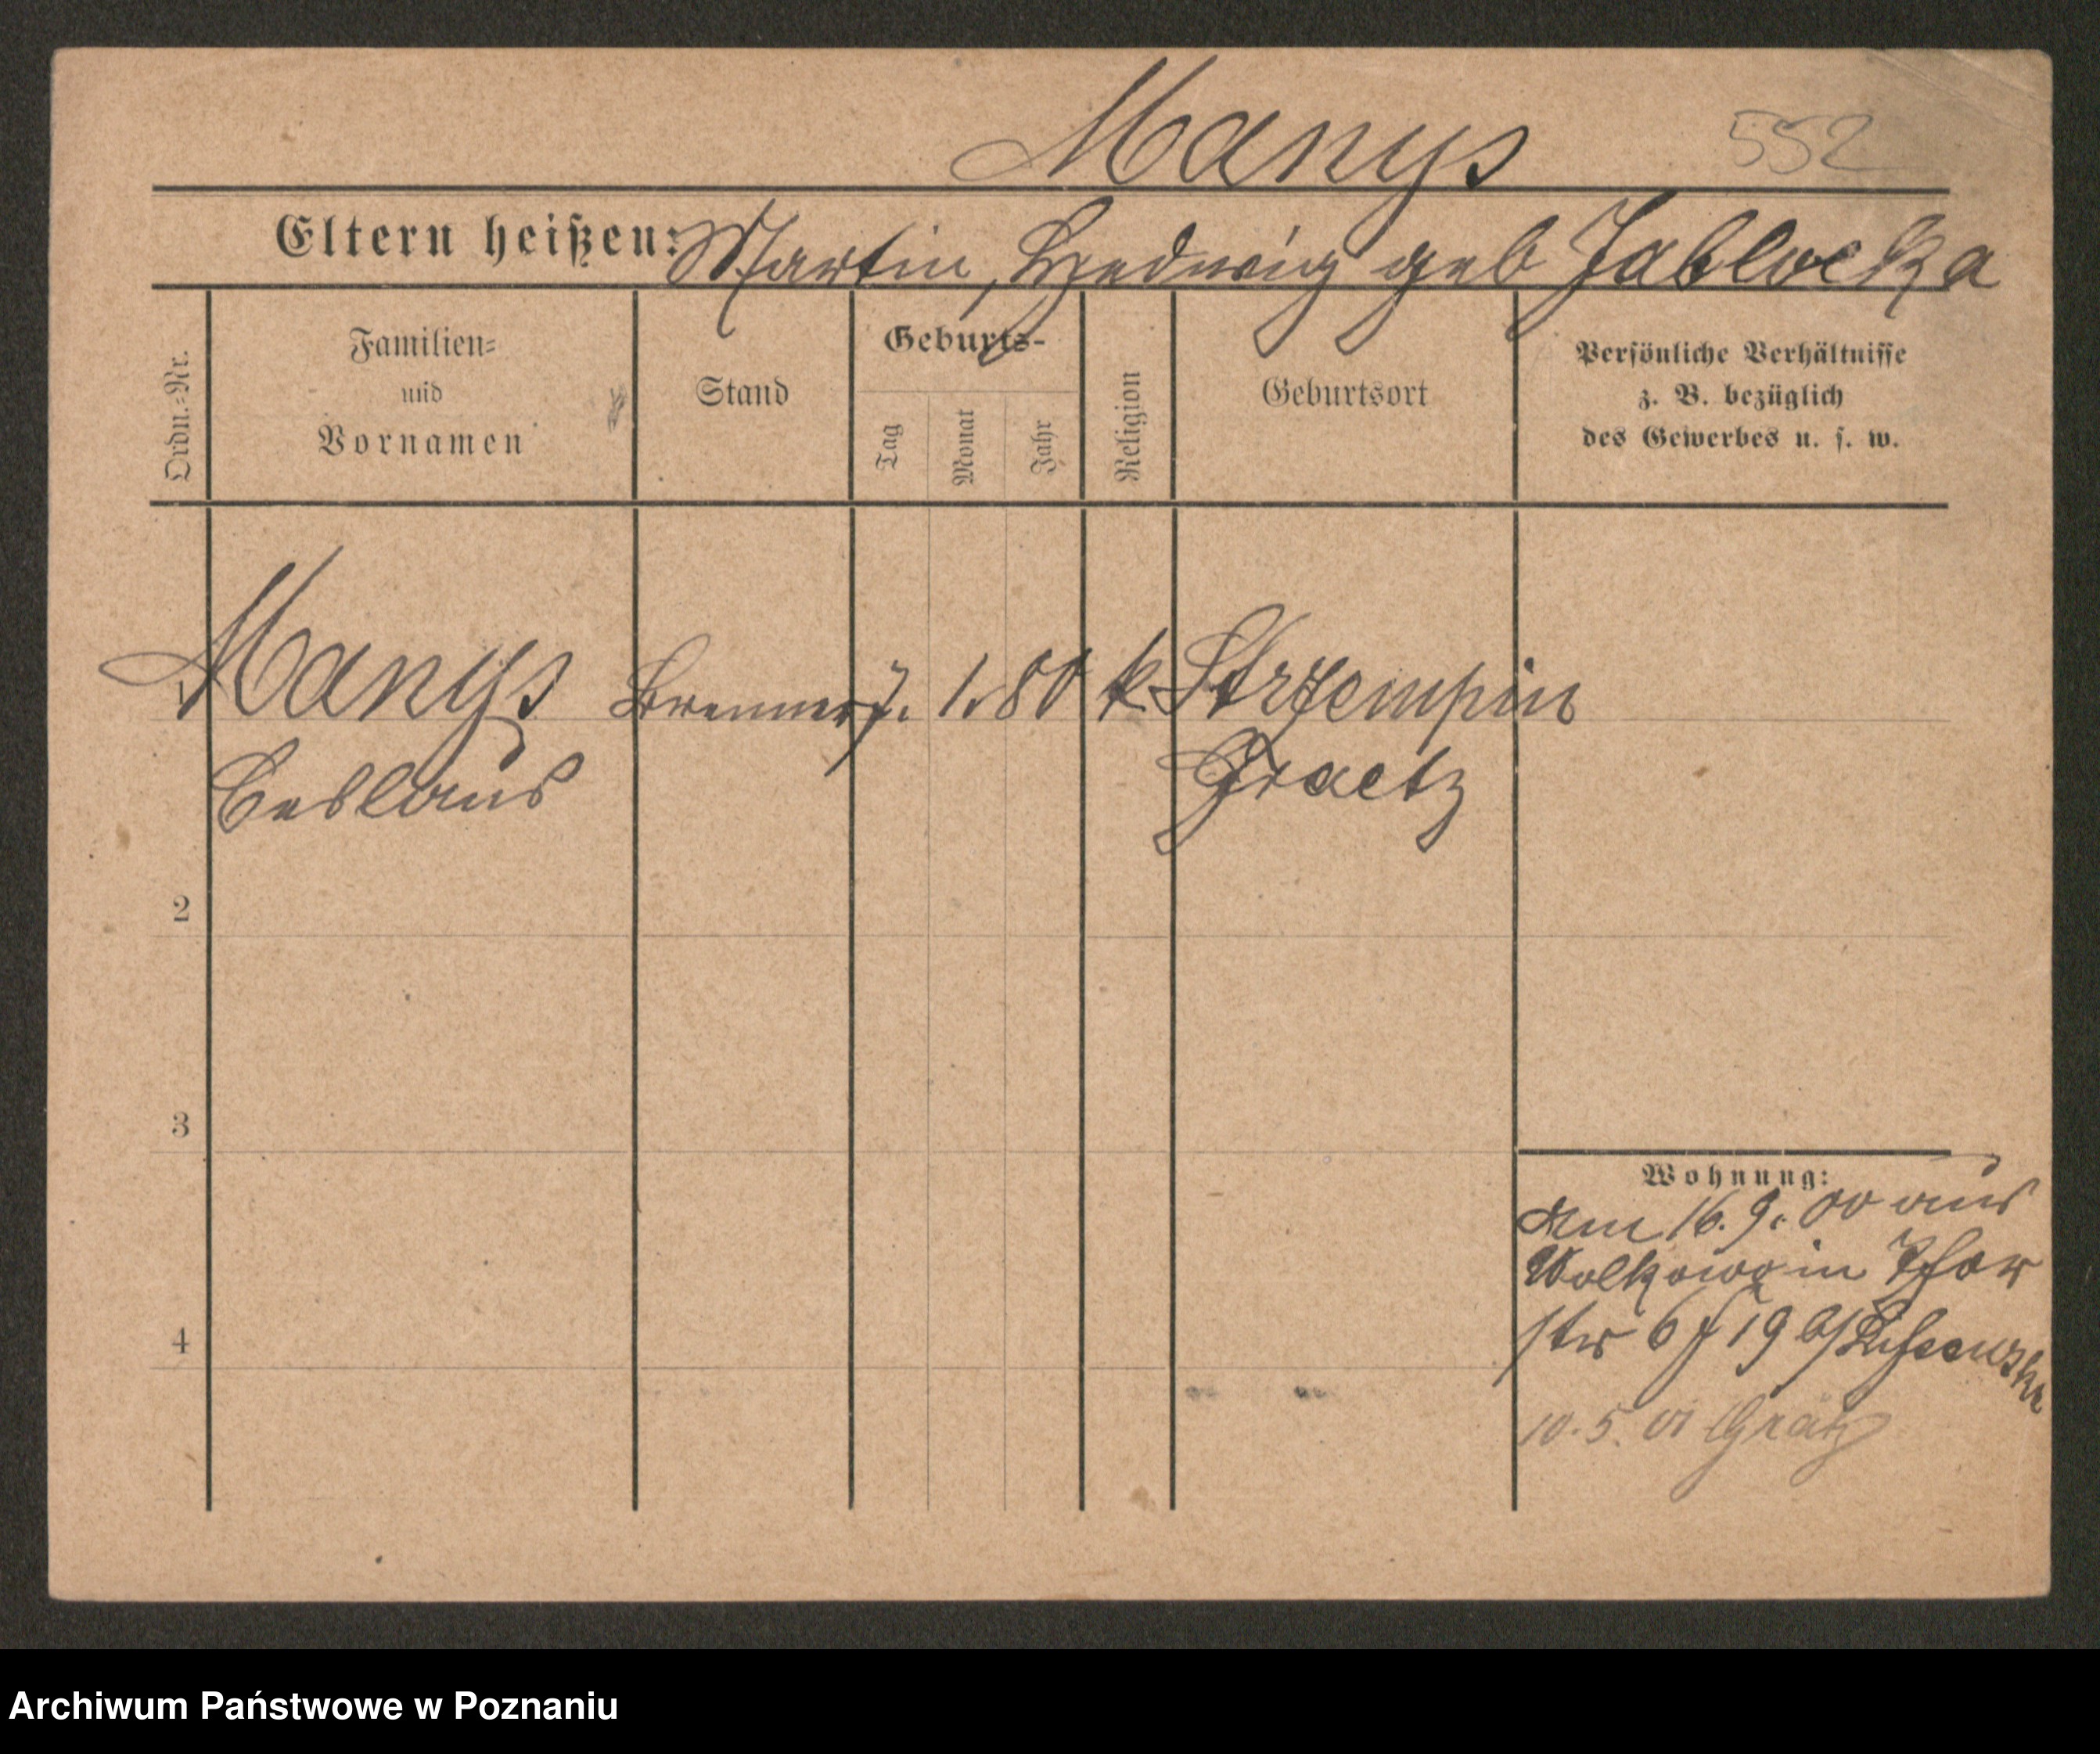 Manys 552
Eltern heißen: Martin, Hedwig geb Jablocka
Ordn.-Nr.
Familien-
und
Vornamen
Stand
Geburts-
Tag
Monat
Jahr
Religion
Geburtsort
Persönliche Verhältnisse
z. B. bezüglich
des Gewerbes u. s. w.
1 Manys Brenner 7. 1. 80 k Strzempin
Ceslaus Graetz
2
3
Wohnung:
Am 16. 9. 00 aus
Wolkowo in
str 6 19 b/
4
10. 5. 01 Grätz
Archiwum Państwowe w Poznaniu